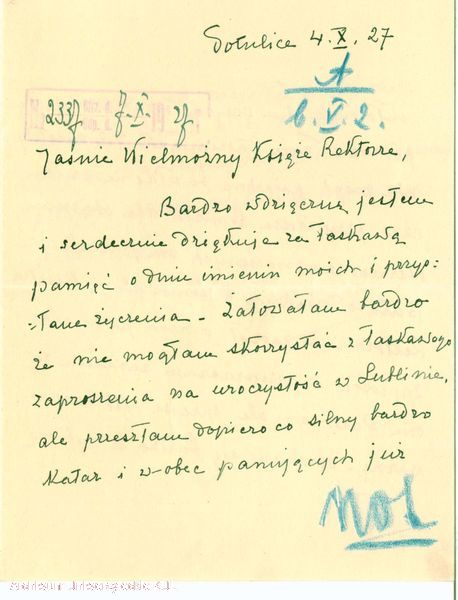 Sośnice 4. X. 27
A
b. V. 2.
2337 7-X- 27
Jaśnie Wielmożny Księże Rektorze,
Bardzo wdzięczną jestem
i serdecznie dziękuję za łaskawą
pamięć o dniu imienin moich i przys=
=łane życzenia – Żałowałam bardzo
że nie mogłam skorzystać z łaskawego
zaproszenia na uroczystość w Lublinie,
ale przeszłam dopiero co silny bardzo
Katar i w-obec panujących już